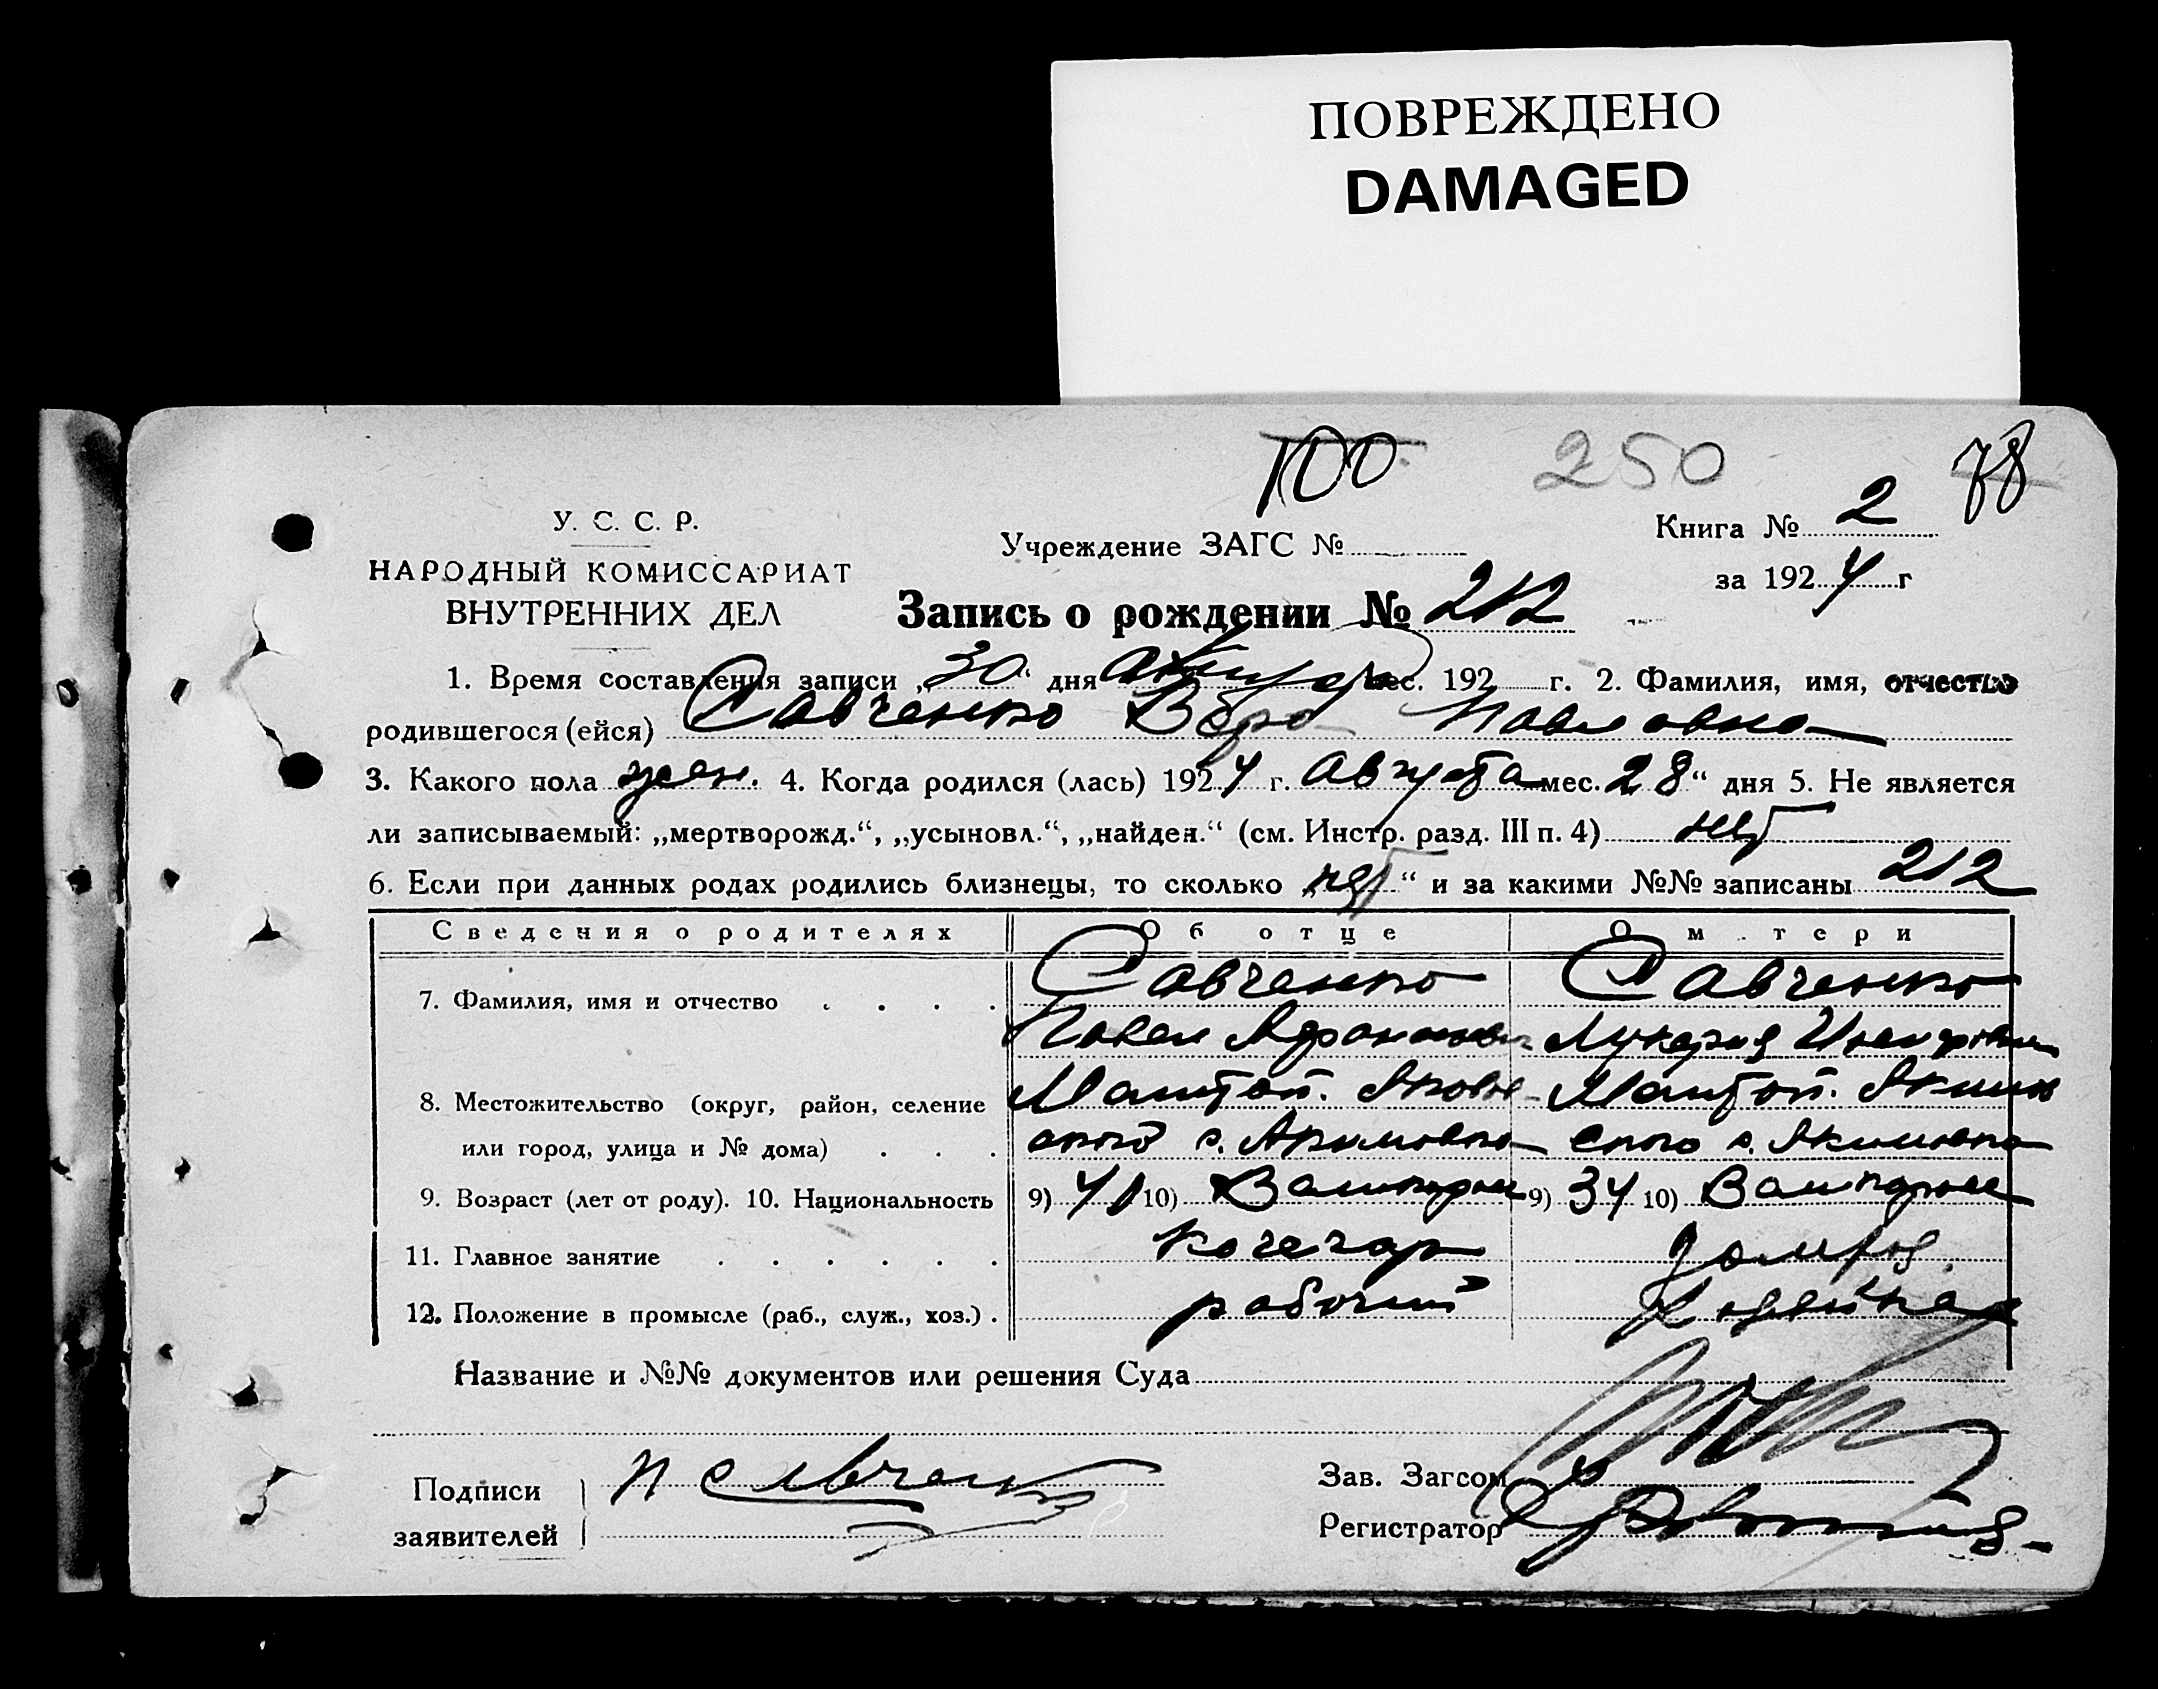 ПОВРЕЖДЕНО
DAMAGED
100 250 78
У. С. С. Р.
НАРОДНЫЙ КОМИССАРИАТ
ВНУТРЕННИХ ДЕЛ
Учреждение ЗАГС №
Книга № 2
за 1924 г
Запись о рождении № 212
1. Время составления записи „30“ дня мес. 192 г. 2. Фамилия, имя, отчество
родившегося (ейся) Савченко Вера Павловна
3. Какого пола жен. 4. Когда родился (лась) 1924 г. Августа мес. 28“ дня 5. Не является
ли записываемый: „мертворожд.“, „усыновл.“, „найден.“ (см. Инстр. разд. III п. 4) нет
6. Если при данных родах родились близнецы, то сколько „нет“ и за какими №№ записаны 212
Сведения о родителях Об отце О м тери
7. Фамилия, имя и отчество . . . . Савченко Савченко
Павел Лукерия
8. Местожительство (округ, район, селение Мелитоп. Мелитоп.
или город, улица и № дома) . . . ского с. Акимовка ского с. Акимовка
9. Возраст (лет от роду). 10. Национальность 9) 41 10) 9) 34 10)
11. Главное занятие . . . . . . кочегар домхоз.
12. Положение в промысле (раб., служ., хоз.) . рабочий
Название и №№ документов или решения Суда
Подписи
заявителей
П Савченко
Зав. Загсом
Регистратор